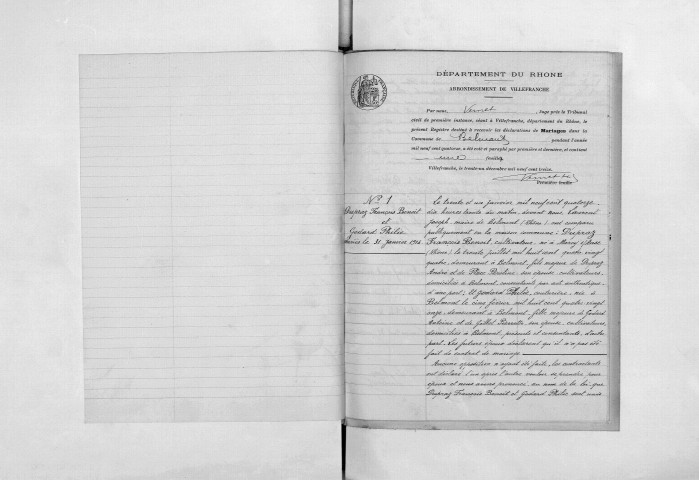 DÉPARTEMENT DU RHONE
ARRONDISSEMENT DE VILLEFRANCHE
Par nous, Vernet, Juge près le Tribunal
civil de première instance, séant à Villefranche, département du Rhône, le
présent Registre destiné à recevoir les déclarations de Mariages dans la
Commune de Belmont pendant l'année
mil neuf cent quatorze, a été coté et paraphé par première et dernière, et contient
feuillets
Villefranche, le trente-un décembre mil neuf cent treize.
Dernière feuille
N° 1
Dupraz François Benoit
et
Godard Philie
le 31 janvier 1914
Le trente et un janvier mil neuf cent quatorze
dix heures trente du matin, devant nous
Joseph, maire de Belmont (Rhône) ont comparu
publiquement en la maison commune : Dupraz
François Benoit, cultivateur, né à
(Rhône) le trente juillet mil huit cent quatre vingt
quatre, demeurant à Belmont, fils majeur de Dupraz
André et de Pauline, son épouse, cultivateurs,
domiciliés à Belmont, consentants par acte authentique,
d'une part ; Et Godard Philie, couturière, née à
Belmont le cinq février mil huit cent quatre vingt
onze, demeurant à Belmont, fille majeure de Godard
Antoine et de Pierrette, son épouse, cultivateurs,
domiciliés à Belmont, présents et consentants, d'autre
part. Les futurs époux déclarent qu'il n'a pas été
fait de contrat de mariage
Aucune opposition n'ayant été faite, les contractants
ont déclaré l'un après l'autre vouloir se prendre pour
époux et nous avons prononcé, au nom de la loi, que
Dupraz François Benoit et Godard Philie sont unis